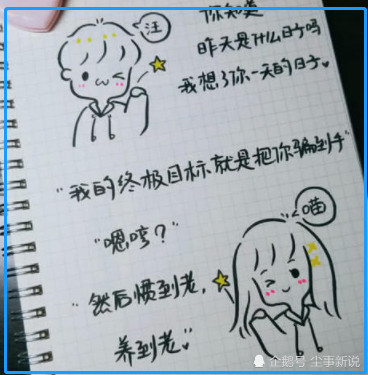 汪
你知道
昨天是什么日子吗
我想了你一天的日子
"我的终极目标就是把你骗到手"
"嗯哼?"
喵
"然后惯到老,
养到老"
企鹅号 尘事新说